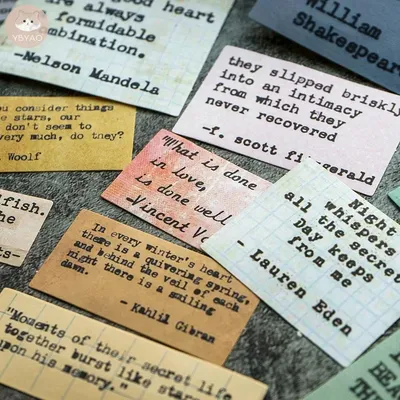 YBYAO
good heart
are always
formidable
ombination.
-Nelson Mandela
William
Shakespeare
they slipped briskly
into an intimacy
from which they
never recovered
-f. scott fitzgerald
you consider things
the stars, our
don't seem to
very much, do they?
Woolf
"What is done
in love,
is done well
-Vincent V
Night
whispers
all the secret
Day keeps
from me
- Lauren Eden
lfish.
the
ts-
In every winter's heart
there is a quivering spring,
and behind the veil of each
night there is a smiling
dawn.
- Kahlil Gibran
"Moments of their secret life
together burst like stars
upon his memory."
BEA
THE